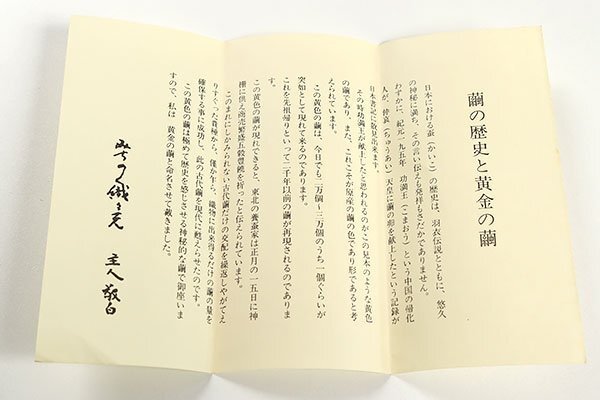 繭の歴史と黄金の繭
日本における蚕(かいこ)の歴史は、羽衣伝説とともに、悠久
の神秘に満ち、その言い伝えも発祥もさだかでありません。
わずかに、紀元一九五年 功満王(こまおう)という中国の帰化
人が、仲哀(ちゅうあい)天皇に繭の卵を献上したという記録が
日本書記に散見出来ます。
その時功満王が献上したと思われるのがこの見本のような黄色
の繭であり、また、これこそが原産の繭の色であり形であると考
えられています。
この黄色の繭は、今日でも二万個〜三万個のうち一個ぐらいが
突如として現れて来るのであります。
これを先祖帰りといって二千年以前の繭が再現されるのでありま
す。
この黄色の繭が現れてきると、東北の養蚕家は正月の一五日に神
棚に供え商売繁盛五穀豊饒を祈ったと伝えられています。
このまれにしかみられない古代繭だけの交配を繰返しやがてえ
りすぐった貴種から、僅か乍ら、織物に出来得るだけの繭の量を
確保する事に成功し、此の古代繭を現代に甦えらせたのです。
この黄色の繭は極めて歴史を感じさせる神秘的な繭で御座いま
すので、私は 黄金の繭と命名させて戴きました。
主人 敬白